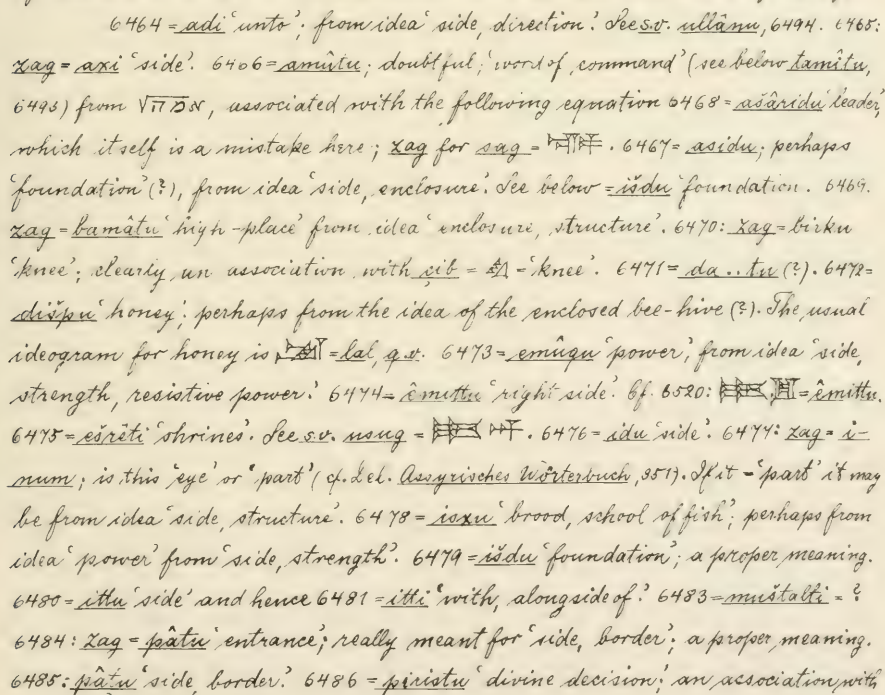 6464 = adi 'unto'; from idea 'side, direction'. See s.v. ullânu, 6494. 6465:
zag = axi 'side'. 6466 = amûtu; doubtful; 'word of command' (see below tamîtu,
6493) from √, associated with the following equation 6468 = ašâridu 'leader',
which itself is a mistake here; zag for sag = . 6467 = asidu; perhaps
'foundation' (?), from idea 'side, enclosure'. See below = išdu 'foundation'. 6469.
zag = bamâtu 'high-place' from idea 'enclosure, structure'. 6470: zag = birku
'knee'; clearly an association with çib = = 'knee'. 6471 = da..tu (?). 6472 =
dišpu 'honey'; perhaps from the idea of the enclosed bee-hive (?). The usual
ideogram for honey is = lal, q.v. 6473 = emûqu 'power', from idea 'side,
strength, resistive power.' 6474 = êmittu 'right side'. Cf. 6520: = êmittu.
6475 = ešrêti 'shrines'. See s.v. usug = . 6476 = idu 'side'. 6477: zag = i-
num; is this 'eye' or 'part' (cf. Del. Assyrisches Wörterbuch, 351). If it = 'part' it may
be from idea 'side, structure'. 6478 = isxu 'brood, school of fish'; perhaps from
idea 'power' from 'side, strength'. 6479 = išdu 'foundation'; a proper meaning.
6480 = ittu 'side' and hence 6481 = itti 'with, alongside of.' 6483 = muštalti = ?
6484: zag = pâtu 'entrance'; really meant for 'side, border'; a proper meaning.
6485: pâtu 'side, border.' 6486 = piristu 'divine decision'; an association with